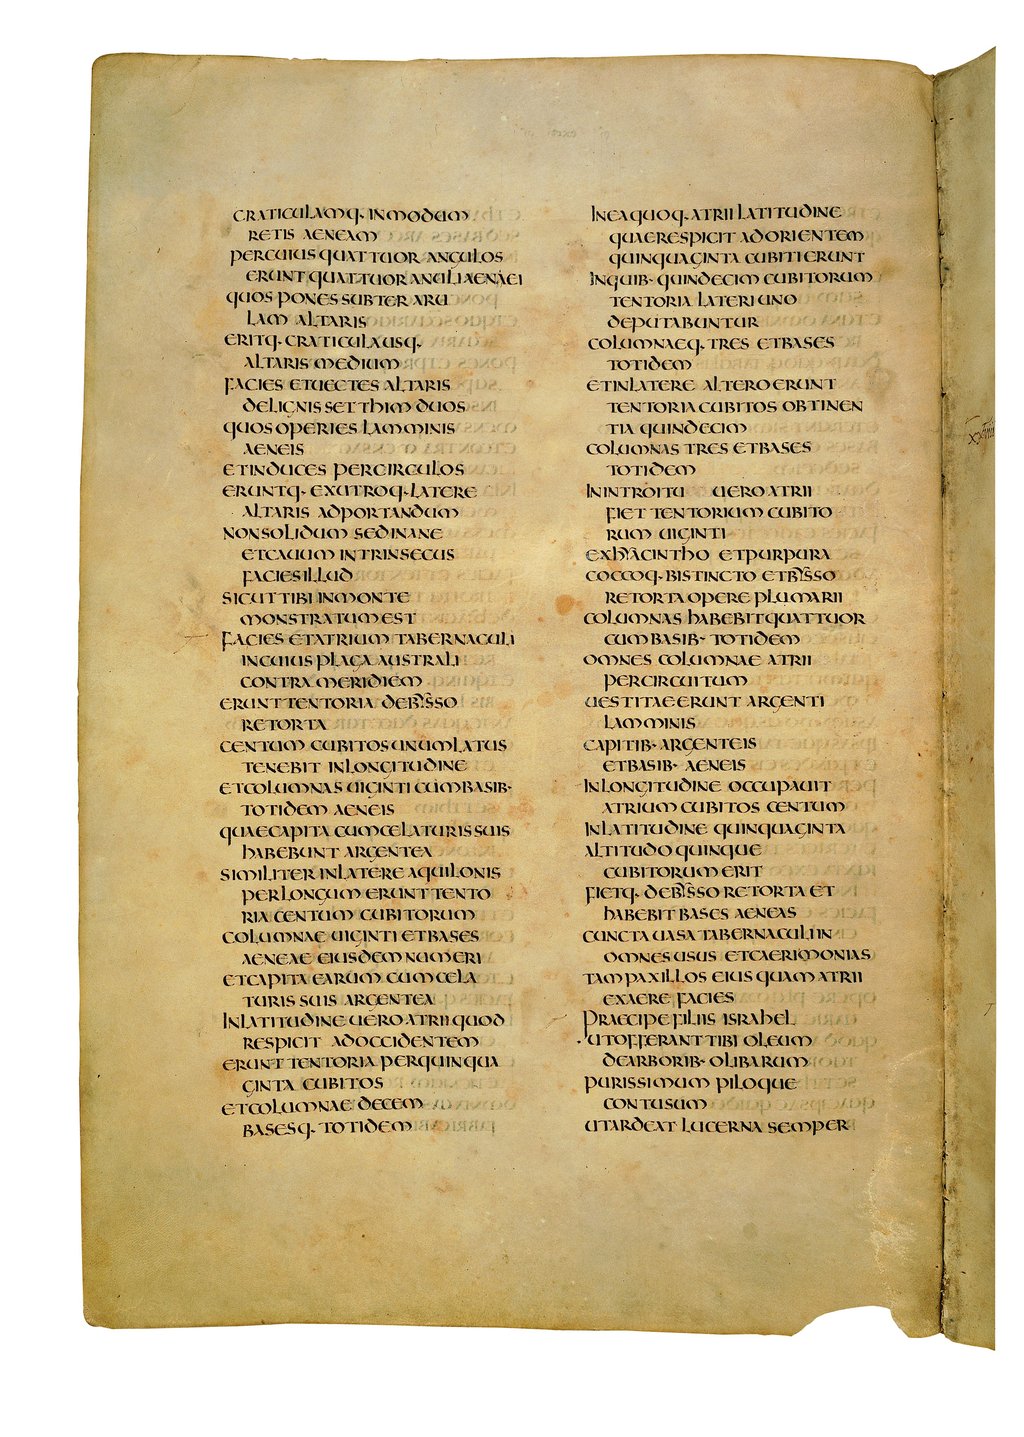 CRATICULAMQ· INMODUM
RETIS AENEAM
PERCUIUS QUATTUOR ANGULOS
ERUNT QUATTUOR ANULI AENAEI
QUOS PONES SUBTER ARU
LAM ALTARIS
ERITQ· CRATICULA USQ·
ALTARIS MEDIUM
FACIES ET UECTES ALTARIS
DE LIGNIS SETTHIM DUOS
QUOS OPERIES LAMMINIS
AENEIS
ET INDUCES PER CIRCULOS
ERUNTQ· EX UTROQ· LATERE
ALTARIS AD PORTANDUM
NON SOLIDUM SED INANE
ET CAUUM INTRINSECUS
FACIES ILLUD
SICUT TIBI IN MONTE
MONSTRATUM EST
FACIES ET ATRIUM TABERNACULI
IN CUIUS PLAGA AUSTRALI
CONTRA MERIDIEM
ERUNT TENTORIA DE BYSSO
RETORTA
CENTUM CUBITOS UNUM LATUS
TENEBIT IN LONGITUDINE
ET COLUMNAS UIGINTI CUM BASIB·
TOTIDEM AENEIS
QUAE CAPITA CUM CELATURIS SUIS
HABEBUNT ARGENTEA
SIMILITER IN LATERE AQUILONIS
PER LONGUM ERUNT TENTO
RIA CENTUM CUBITORUM
COLUMNAE UIGINTI ET BASES
AENEAE EIUSDEM NUMERI
ET CAPITA EARUM CUM CELA
TURIS SUIS ARGENTEA
IN LATITUDINE UERO ATRII QUOD
RESPICIT AD OCCIDENTEM
ERUNT TENTORIA PER QUINQUA
GINTA CUBITOS
ET COLUMNAE DECEM
BASESQ· TOTIDEM
IN EA QUOQ· ATRII LATITUDINE
QUAE RESPICIT AD ORIENTEM
QUINQUAGINTA CUBITI ERUNT
IN QUIB· QUINDECIM CUBITORUM
TENTORIA LATERI UNO
DEPUTABUNTUR
COLUMNAEQ· TRES ET BASES
TOTIDEM
ET IN LATERE ALTERO ERUNT
TENTORIA CUBITOS OBTINEN
TIA QUINDECIM
COLUMNAS TRES ET BASES
TOTIDEM
IN INTROITU UERO ATRII
FIET TENTORIUM CUBITO
RUM UIGINTI
EX HYACINTHO ET PURPURA
COCCOQ· BISTINCTO ET BYSSO
RETORTA OPERE PLUMARII
COLUMNAS HABEBIT QUATTUOR
CUM BASIB· TOTIDEM
OMNES COLUMNAE ATRII
PER CIRCUITUM
UESTITAE ERUNT ARGENTI
LAMMINIS
CAPITIB· ARGENTEIS
ET BASIB· AENEIS
IN LONGITUDINE OCCUPAUIT
ATRIUM CUBITOS CENTUM
IN LATITUDINE QUINQUAGINTA
ALTITUDO QUINQUE
CUBITORUM ERIT
FIETQ· DE BYSSO RETORTA ET
HABEBIT BASES AENEAS
CUNCTA UASA TABERNACULI IN
OMNES USUS ET CAERIMONIAS
TAM PAXILLOS EIUS QUAM ATRII
EX AERE FACIES
PRAECIPE FILIIS ISRAHEL
UT OFFERANT TIBI OLEUM
DE ARBORIB· OLIBARUM
PURISSIMUM PILOQUE
CONTUSUM
UT ARDEAT LUCERNA SEMPER